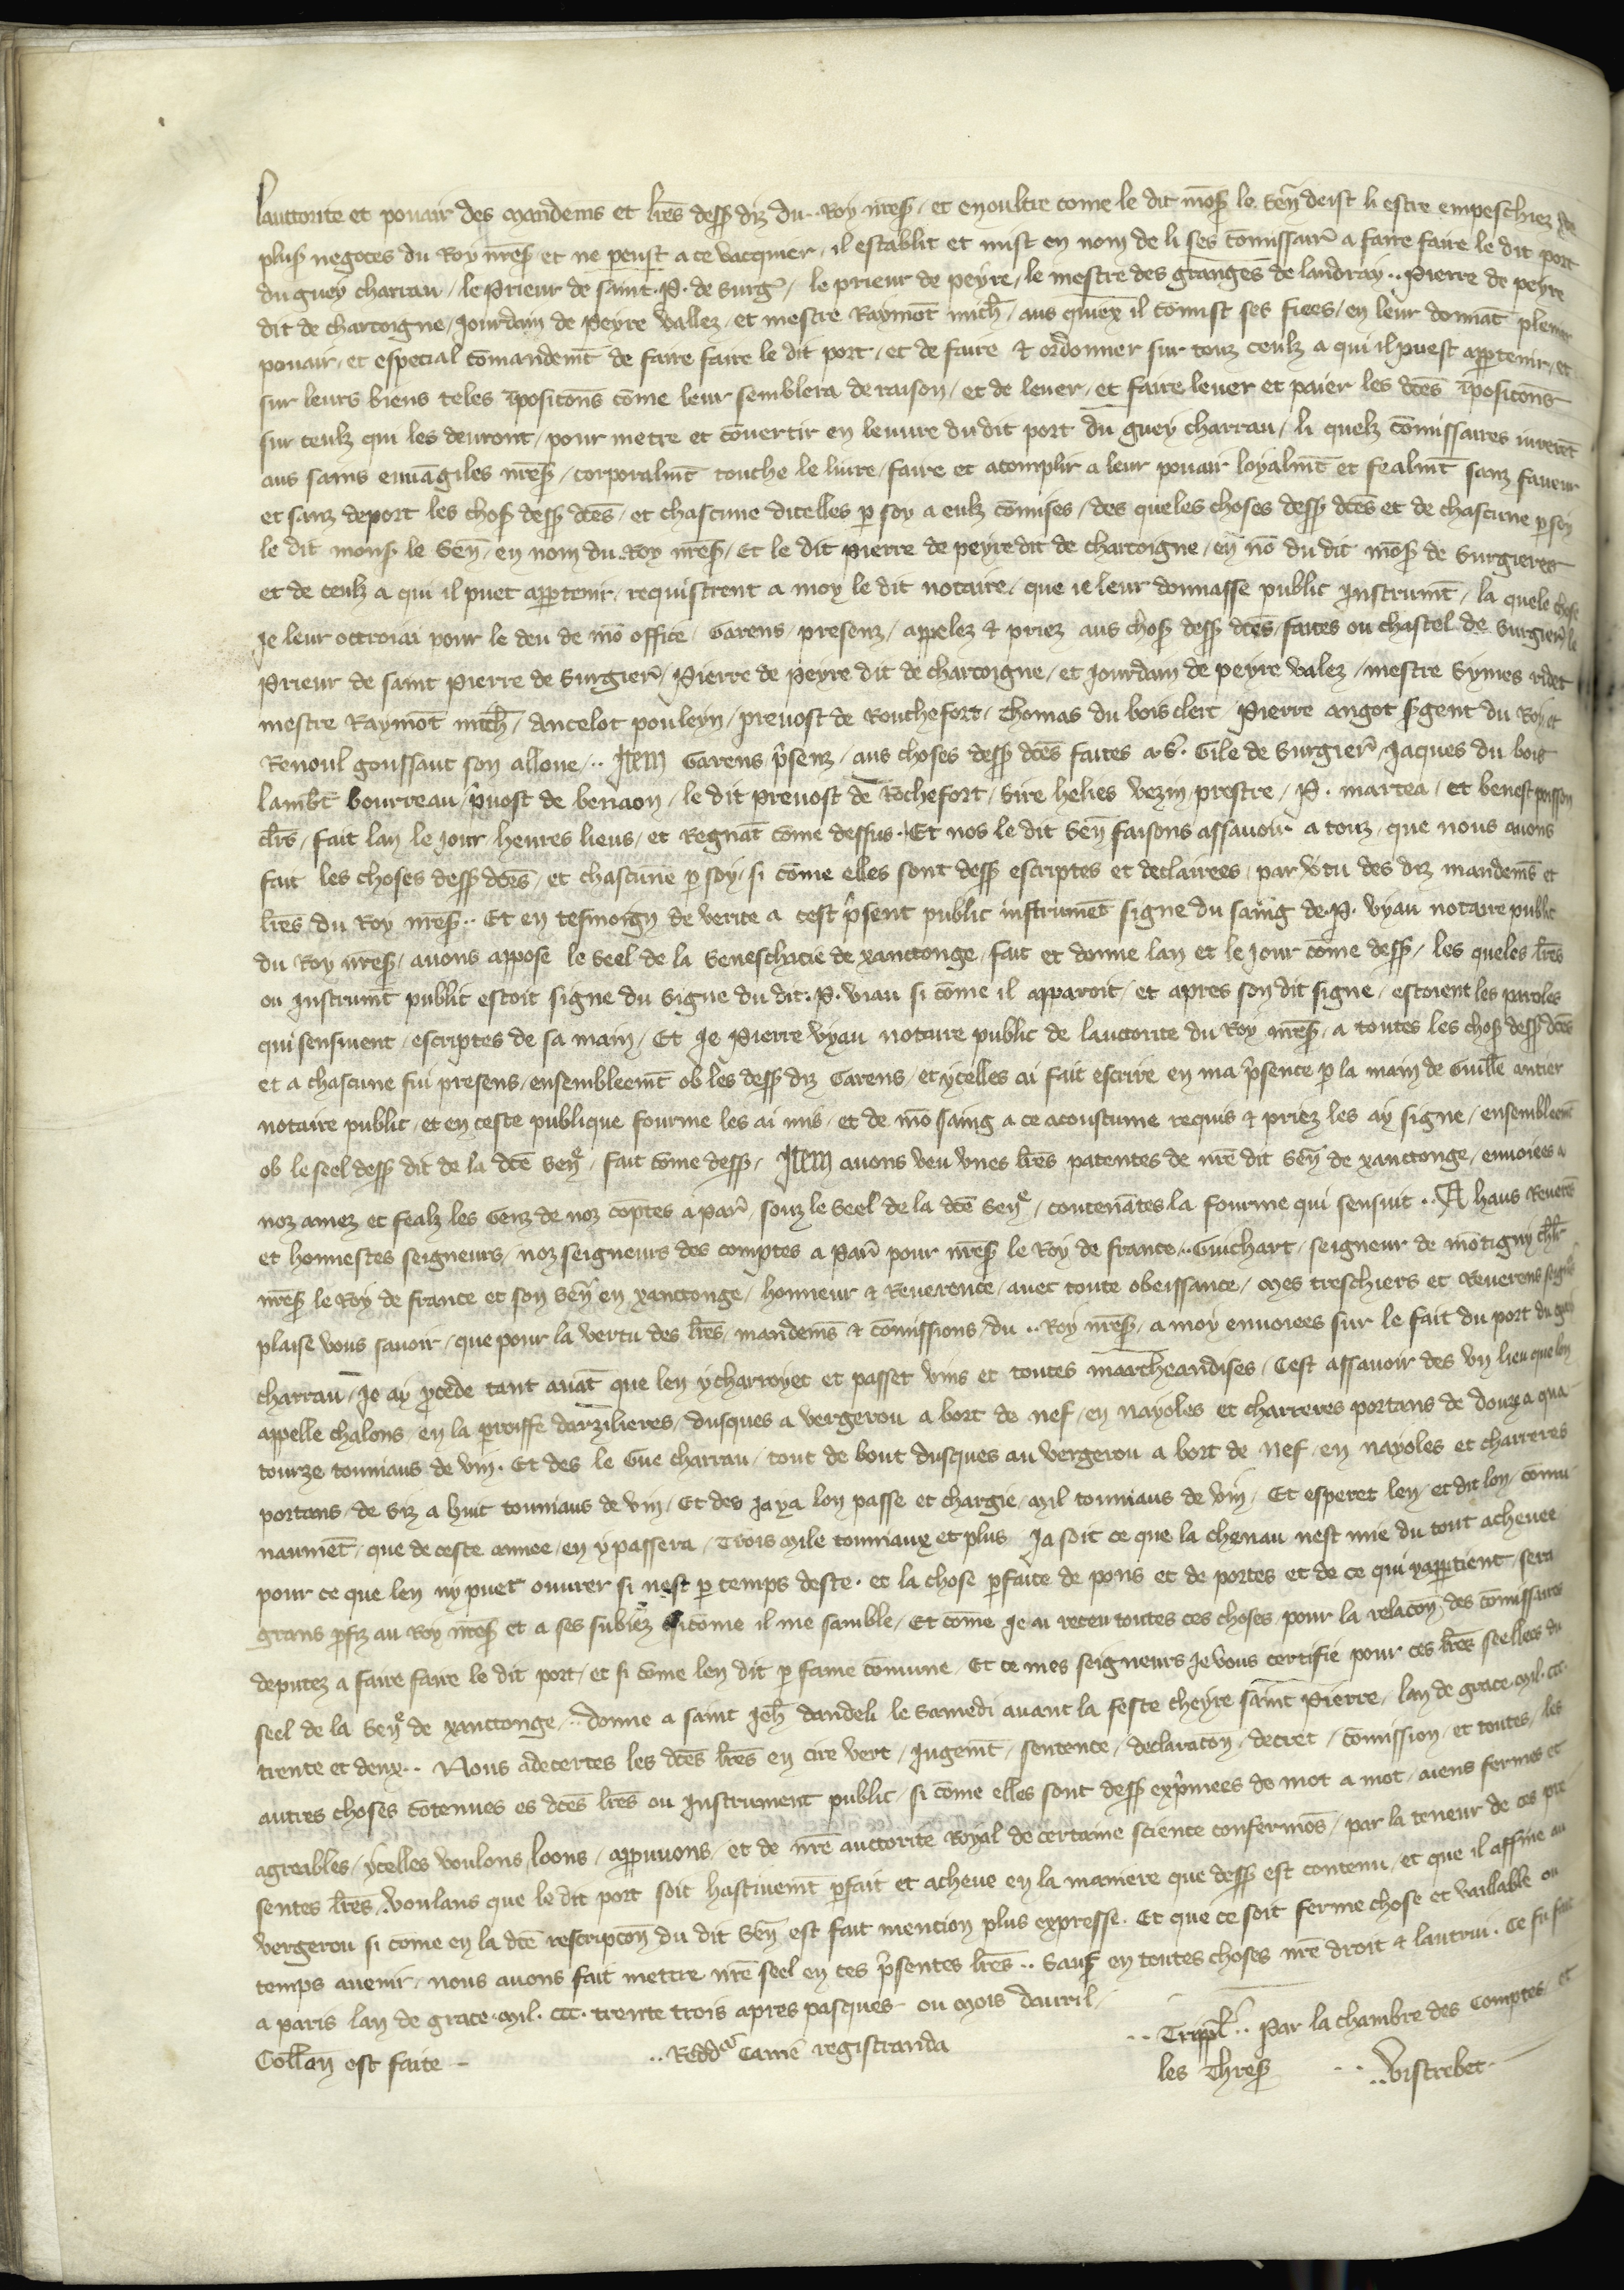 lauctorite et pouair des mandemens et lr̄es dess9 diz du ·· Roy nr̄es9 / et en oultre come le dit mōs9 le Sen̄ deist li estre empeschiez
plus9 negoces du Roy nr̄es9 et ne peust a ce vacquier / il establit et mist en nom de li ses cōmissair̄ a faire faire le dit port
du guey charrau / le Prieur de saint · P · de Surḡ / le prieur de peyre / le mestre des granges de landray ·· Pierre de peyre
dit de chartoigne / Jourdain de peyre vallez / et mestre Raymōt mich̄ / aus quiex il cōmist ses fiees / en leur donnāt plenier
pouair / et especial cōmandemt̄ de faire faire le dit port / et de faire & ordonner sur touz ceulz a qui il puest appartenir / et
sur leurs biens teles īposicōns cōme leur semblera de raison / et de lever / et faire lever et paier les dc̄es īposicōns
sur ceulz qui les devront / pour metre et cōvertir en leuvre du dit port du guey charrau / li quelz cōmissaires iurerēt
aus sains euvāgiles nr̄es9 / corporalmt̄ touche le livre / faire et acomplir a leur pouair loyalmt̄ et fealmt̄ sanz faveur
et sanz deport les chos9 dess9 dc̄es / et chascune dicelles p soy a eulz cōmises / des queles choses dess9 dc̄es et de chascune p soy
le dit mons9 le Sen̄ / en nom du Roy nr̄es9 / Et le dit pierre de peyre dit de chartoigne / en nō du dit mōs9 de Surgieres
et de ceulz a qui il puet appartenir / requistrent a moy le dit notaire / que ie leur donnasse public Instrumt̄ / la quele chose
Je leur octroiai pour le deu de mō office / Garens / presenz / appelez & priez aus chos9 dess9 dc̄es / faites ou chastel de Surgier̄ le
Prieur de saint Pierre de Surgier̄ / Pierre de peyre dit de chartoigne / et Jourdain de peyre valez / mestre Symes ridet
mestre Raymōt mich̄ / Ancelot pouleyn / prevost de Rouchefort / Thomas du bois clerc / Pierre angot s9gent du Roy et
Renoul goussaut son alloue / ·· Item Garens p̄senz / aus choses dess9 dc̄es faites a S · Gile de Surgier̄ / Jaques du bois
Lambt̄ Bourreau / p̄vost de benaon / le dit prevost de Rochefort / Sire helies vezin prestre / P · martea / et benest poisson
clr̄s / Fait lan le Jour / heures lieus / et Regnāt cōme dessus · Et nos le dit Sen̄ faisons assavoir a touz / que nous avons
fait les choses dess9 dc̄es / et chascune p soy / si cōme elles sont dess9 escriptes et declairees / par v̄tu des diz mandemēs et
lr̄es du Roy nr̄es9 ·· Et en tesmoign de verite a cest p̄sent public instrumēt signe du saing de · P · vyau notaire public
du Roy nr̄es9 / avons appose le seel de la Seneschacie de xanctonge / fait et donne lan et le Jour cōme dess9 / les queles lr̄es
ou Instrumt̄ public estoit signe du Signe du dit · P · viau si cōme il apparoit / et apres son dit signe / estoient les paroles
qui sensivent / escriptes de sa main / Et Je Pierre vyau notaire public de lauctorite du Roy nr̄es9 / a toutes les chos9 dess9 dc̄es
et a chascune fui presens / ensembleemt̄ ob les dess9 diz Garens / et ycelles ai fait escrire en ma p̄sence p la main de Guill̄e antier
notaire public / et en ceste publique fourme les ai mis / et de mō saing a ce acoustume requis & priez les ay signe / ensembleemt̄
ob le seel dess9 dit de la dc̄e Seneͤ / fait cōme dess9 / Item avons veu vnes lr̄es patentes de nr̄e dit Sen̄ de xanctonge / envoiees a
noz amez et fealz les Genz de noz cōptes a par̄ / souz le seel de la dc̄e Seneͤ / contenātes la fourme qui sensuit ·· A haus Reverēs
et honnestes seigneurs / noz seigneurs des comptes a Par̄ pour nr̄es9 le Roy de france ·· Guichart / seigneur de mōtigny chl̄r
nr̄es9 le Roy de france et son Sen̄ en xanctonge / honneur & Reverence / avec toute obeissance / Mes treschiers et Reverens seigrs̄
plaise vous savoir / que pour la vertu des lr̄es / mandemēs & cōmissions / du ·· Roy nr̄es9 / a moy envoiees sur le fait du port du guey
charrau / Je ay p̄cede tant avāt que len y charroyet et passet vins et toutes marcheandises / Cest assavoir des vn lieu que lon
appelle chalons / en la p̄roisse darzilieres / dusques a vergerou a bort de nef / en nayoles et charreres portans de douz a qua-
tourze tonniaus de vin · Et des le Gue charrau / tout de bout dusques au vergerou a bort de nef / en nayoles et charreres
portans / de siz a huit tonniaus de vin / Et des Ja ya lon passe et chargie / mil tonniaus de vin / Et esperet len / et dit lon / cōmu-
naumēt / que de ceste annee / en y passera / Trois mile tonniaux et plus Ja soit ce que la chenau nest mie du tout achevee
pour ce que len ny puet ouvrer si nest p temps deste · et la chose p̄faite de pons et de portes et de ce qui y appartient / sera
grans p̄fiz au Roy nr̄es9 et a ses subiez si cōme il me samble / Et cōme Je ai receu toutes ces choses / pour la relacōn des cōmissaires
deputez a faire faire le dit port / et si cōme len dit p fame cōmune / Et ce mes seigneurs Je vous certifie pour ces lr̄es seellees du
seel de la Seneͤ de xanctonge / ·· donne a saint Jeh̄ dandeli le Samedi avant la feste cheyre saint Pierre / lan de grace · Mil · ccc ·
trente et deux ·· Nous adecertes les dc̄es lr̄es en cire vert / Iugemt̄ / sentence / declaracōn / decret / cōmission / et toutes / les
autres choses cōtenues es dc̄es lr̄es ou Instrument public / si cōme elles sont dess9 exp̄mees de mot a mot / aiens fermes et
agreables / ycelles voulons / loons / appruvons / et de nr̄e auctorite Royal de certaine science confermōs / par la teneur de ces pre-
sentes lr̄es / voulans que le dit port soit hastivemt̄ p̄fait et acheve en la maniere que dess9 est contenu / et que il affine au
vergerou si come en la dc̄e rescripcōn du dit Sen̄ est fait mention plus expresse · Et que ce soit ferme chose et vaillable ou
temps avenir / nous avons fait mettre nr̄e seel en ces p̄sentes lr̄es ·· Sauf en toutes choses nr̄e droit & lautrui · Ce fu fait
a paris lan de grace · Mil · ccc · trente trois apres pasques ou mois davril /
·· Tripl̄ ·· Par la chambre des Comptes / et
Coll̄on est faite – ·· Reddār Camē registranda les Thres9 ·· Vistrebec